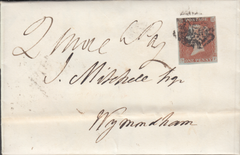 2 more to Pay
J. Mitchell Esqr
Wymondham